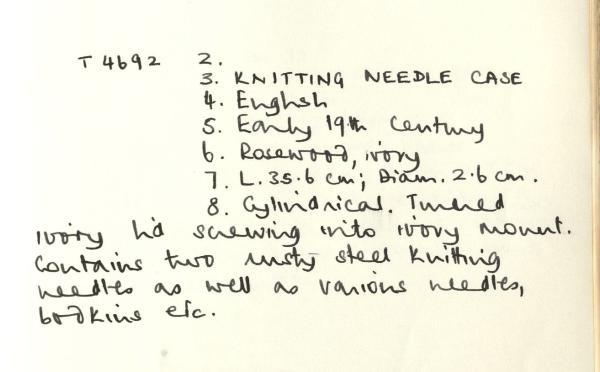 T 4692 2.
3. KNITTING NEEDLE CASE
4. English
5. Early 19th Century
6. Rosewood, ivory
7. L. 35.6 cm; Diam. 2.6 cm.
8. Cylindrical. Turned
ivory lid screwing into ivory mount.
Contains two rusty steel knitting
needles as well as various needles,
bodkins etc.